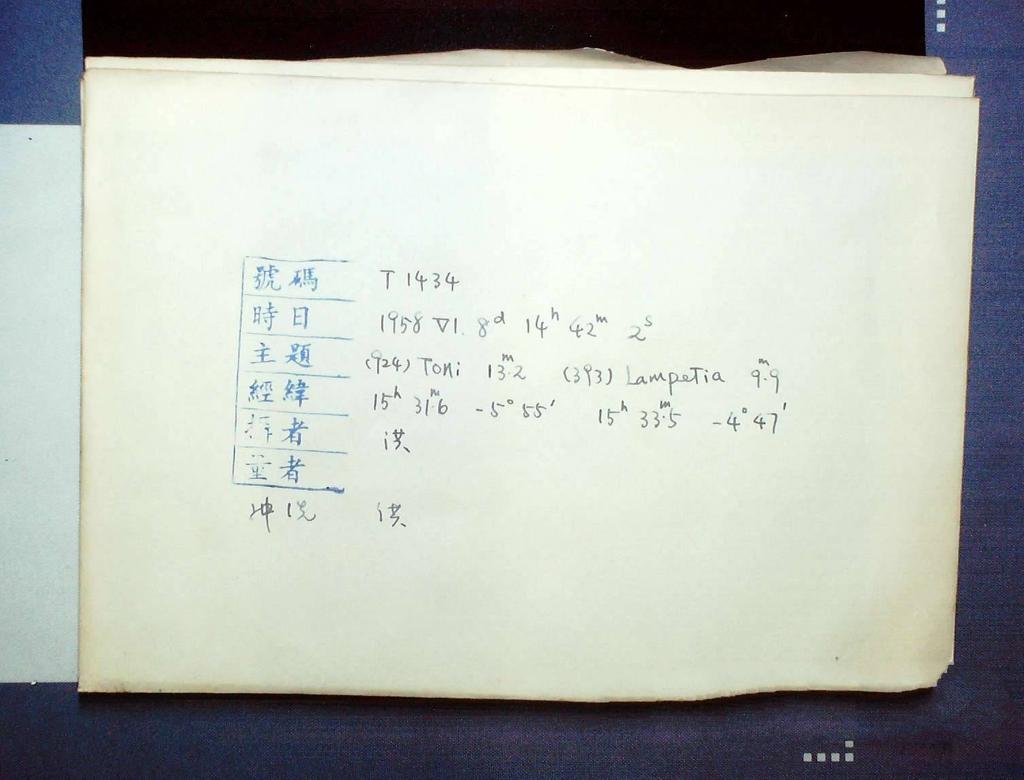 號碼 T 1434
時日 1958 VI. 8ᵈ 14ʰ 42ᵐ 2ˢ
主題 (924) Toni 13ᵐ.2 (393) Lampetia 9ᵐ.9
經緯 15ʰ 31ᵐ.6 -5° 55' 15ʰ 33ᵐ.5 -4° 47'
者 洪
量者
冲洗 洪